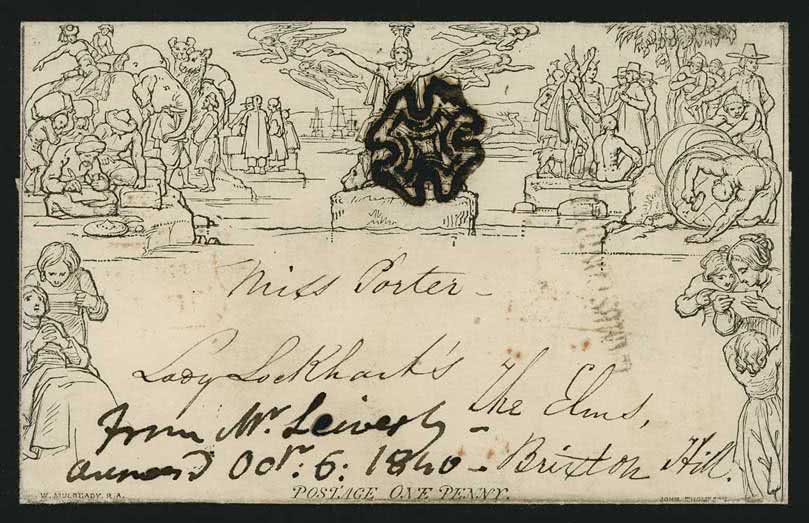 Miss Porter -
Lady Lockhart's
The Elms,
Brixton Hill.
from Mr.
1840 -
W. MULREADY, R.A.
POSTAGE ONE PENNY.
JOHN THOMPSON